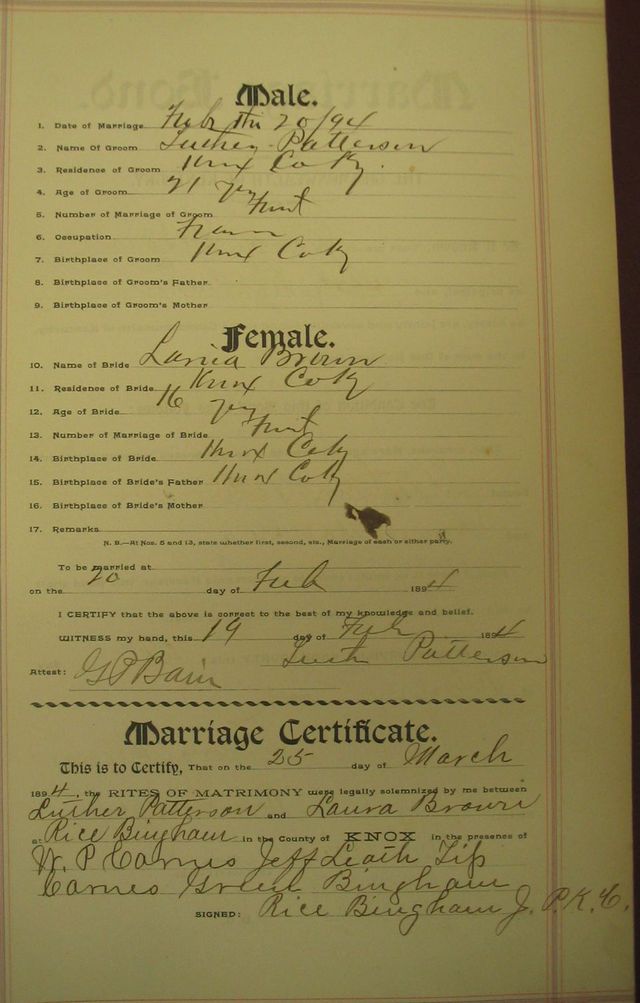 Male.
1. Date of Marriage Feb the 20/94
2. Name Of Groom Luther Patterson
3. Residence of Groom Knox Co Ky.
4. Age of Groom 21 yrs
5. Number of Marriage of Groom First
6. Occupation Farmer
7. Birthplace of Groom Knox Co Ky
8. Birthplace of Groom's Father
9. Birthplace of Groom's Mother
Female.
10. Name of Bride Brown
11. Residence of Bride Knox Co Ky
12. Age of Bride 16 yrs
13. Number of Marriage of Bride First
14. Birthplace of Bride Knox Co Ky
15. Birthplace of Bride's Father Knox Co Ky
16. Birthplace of Bride's Mother
17. Remarks
N. B.—At Nos. 5 and 13, state whether first, second, etc., Marriage of each or either party.
To be married at
on the 20 day of Feb 1894
I CERTIFY that the above is correct to the best of my knowledge and belief.
WITNESS my hand, this 19 day of Feb 1894
Luth Patterson
Attest: G P Bain
Marriage Certificate.
This is to Certify, That on the 25 day of March
1894, the RITES OF MATRIMONY were legally solemnized by me between
Luther Patterson and Laura Brown
at Rice Bingham in the County of KNOX in the presence of
W. P Carnes Jeff Leath Tip
Carnes Green Bingham
SIGNED: Rice Bingham J. P. K. C.